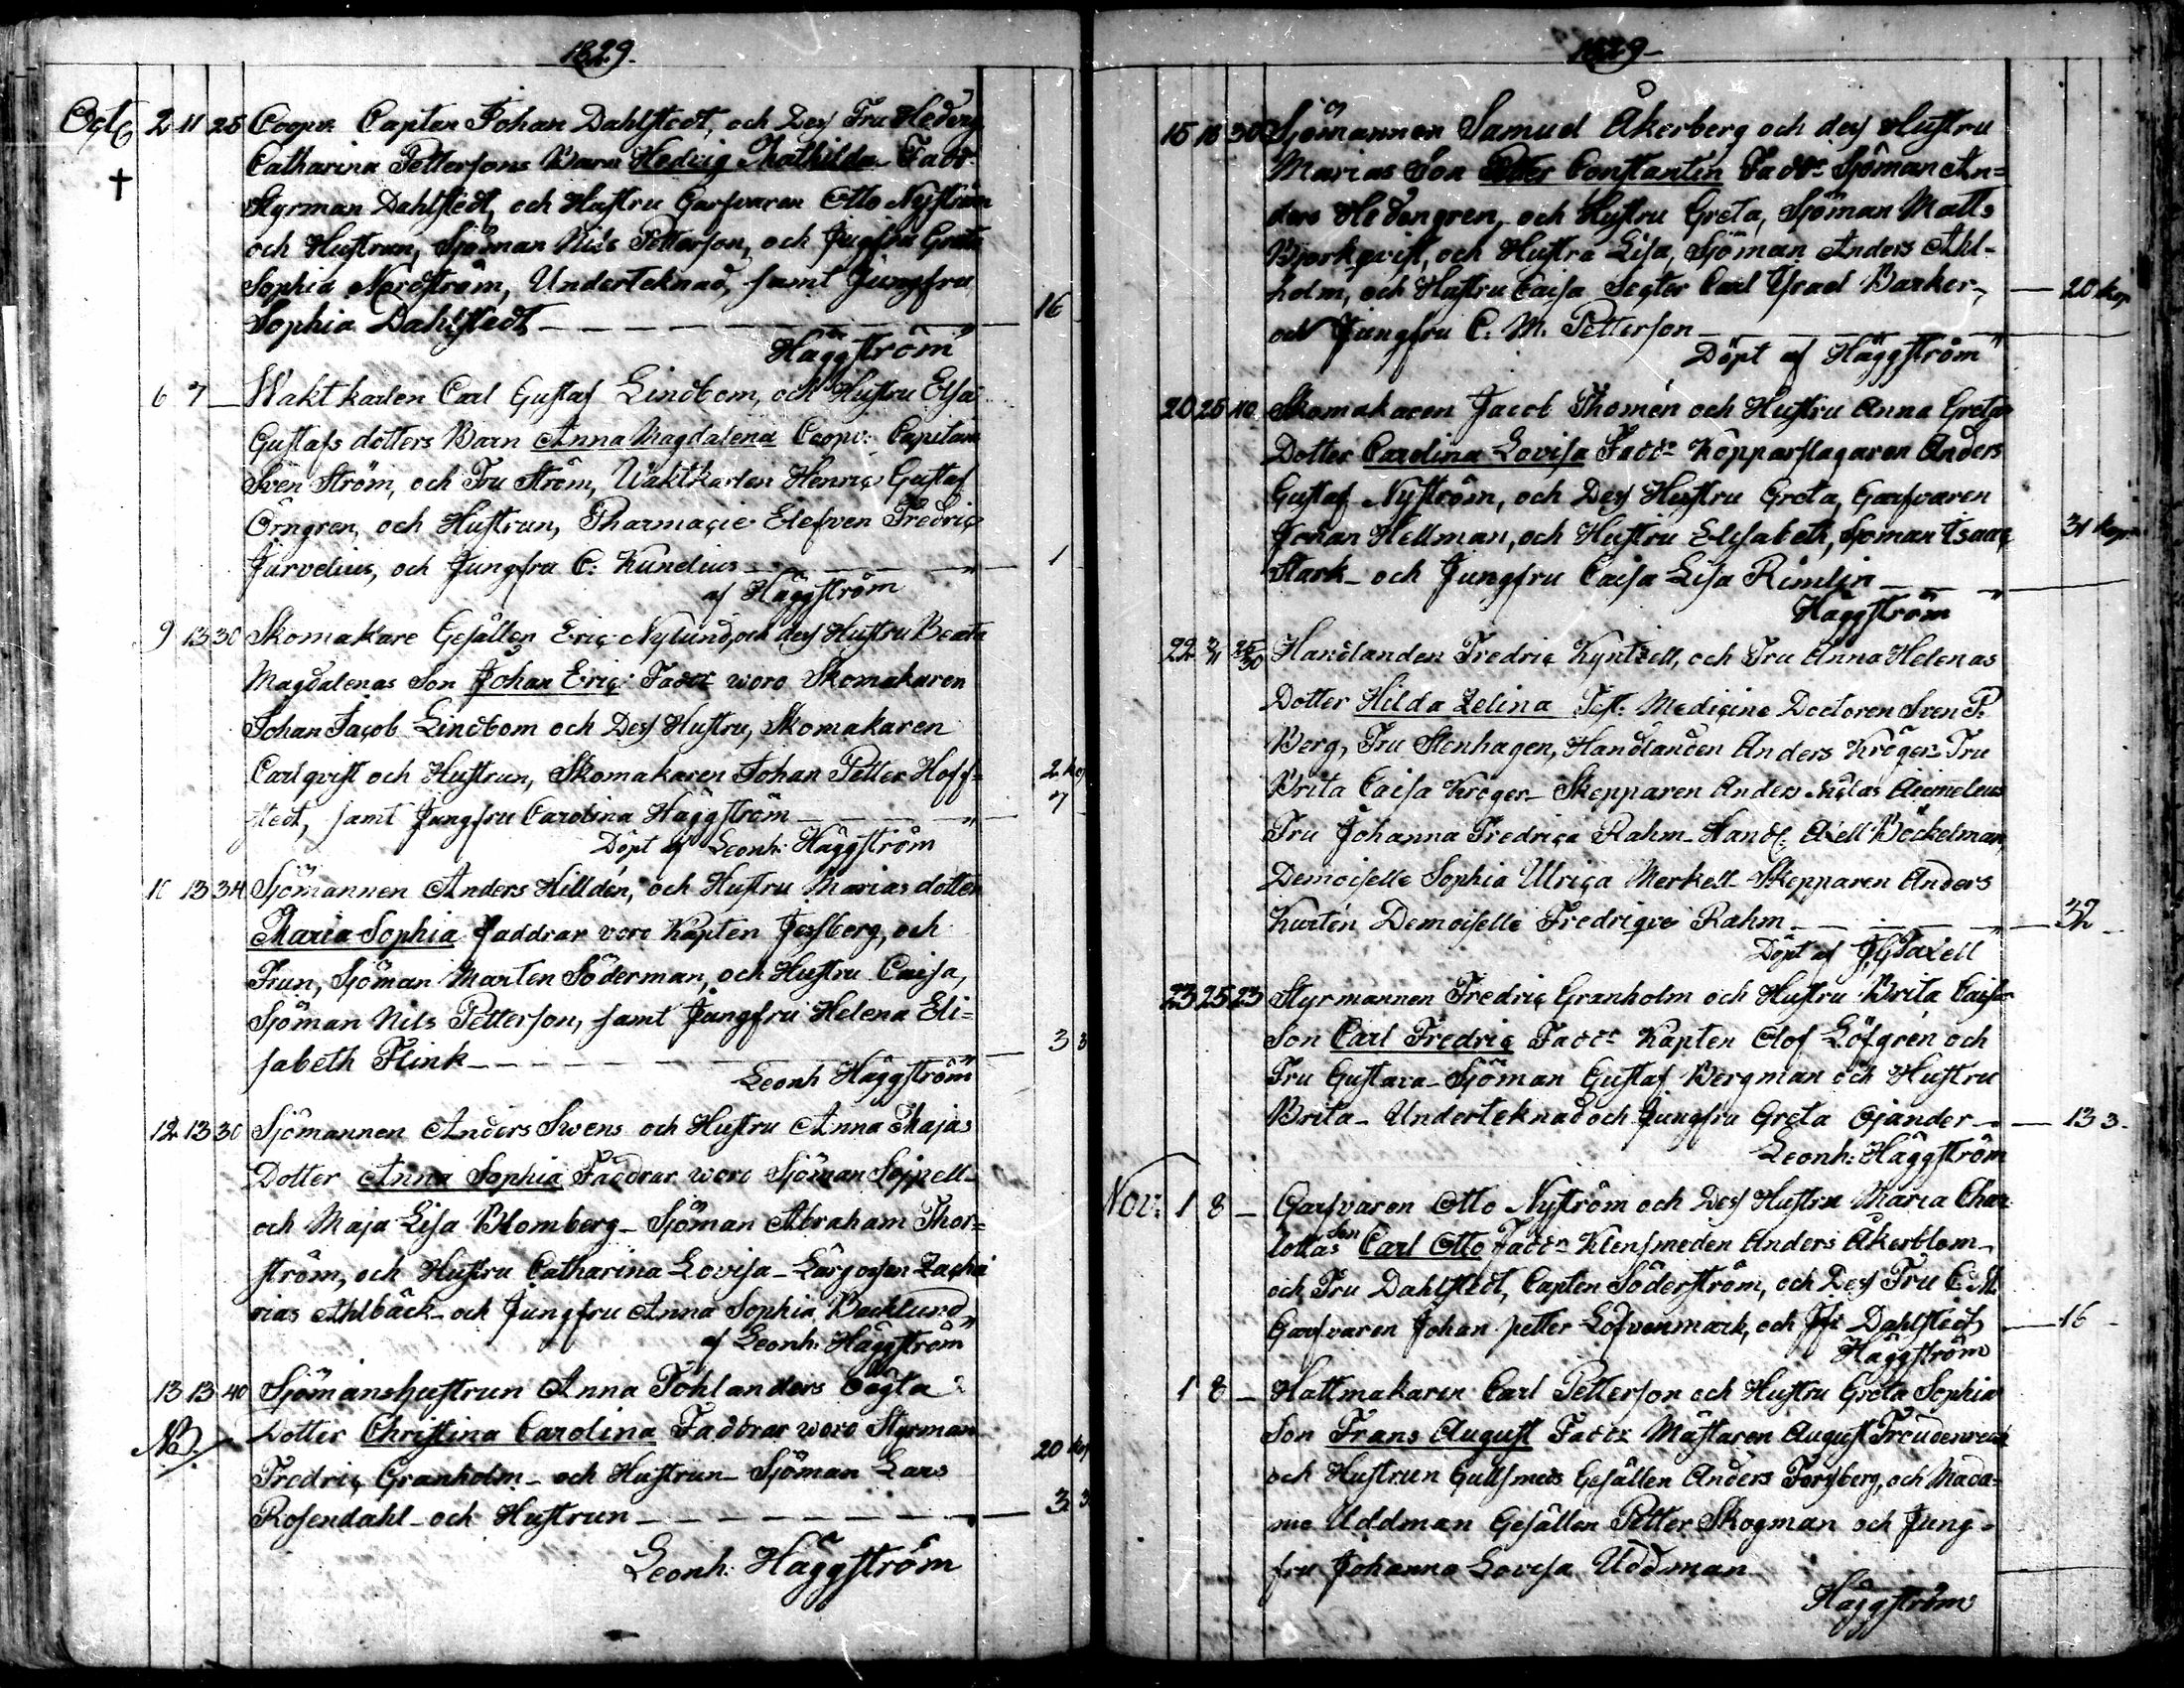 1829.
Oct. 2 11 25 Coopv. Capten Johan Dahlstedt, och Dess Fru Hedvig
Catharina Pettersons Barn Hedvig Mathilda Fadd:
† Styrman Dahlstedt, och Hustru Garfvaren Otto Nyström
och Hustrun, Sjöman Nils Petterson, och Jungfru Greta
Sophia Nordström, Underteknad, samt Jungfru
Sophia Dahlstedt 16
Häggström
6 7 — Waktkarlen Carl Gustaf Lindbom, och Hustru Elsa
Gustafs dotters Barn Anna Magdalena Coopv. Capitain
Sven Ström, och Fru Ström, Waktkarlen Henric Gustaf
Örngren, och Hustrun, Pharmacie Elefven Fredric
Jurvelius, och Jungfru C. Kunelius 1
af Häggström
9 13 30 Skomakare Gesällen Eric Nylund, och dess Hustru Beata
Magdalenas Son Johan Eric Faddr woro Skomakaren
Johan Jacob Lindbom och Dess Hustru, Skomakaren
Carlqvist och Hustrun, Skomakaren Johan Petter Hoff= 2 kop
stedt, samt Jungfru Carolina Häggström 7
Döpt af Leonh: Häggström
10 13 34 Sjömannen Anders Hilldén, och Hustru Marias dotter
Maria Sophia Faddrar voro Kapten Jessberg, och
Frun, Sjöman Marten Söderman, och Hustru Caisa,
Sjöman Nils Petterson, samt Jungfru Helena Eli=
sabeth Flink 3 3
Leonh Häggström
12 13 30 Sjömannen Anders Swens och Hustru Anna Majas
Dotter Anna Sophia Faddrar woro Sjöman Lojpell
och Maja Lisa Blomberg Sjöman Abraham Thor=
ström, och Hustru Catharina Lovisa Lärgossen Zacha
rias Ahlbäck och Jungfru Anna Sophia Backlund
af Leonh: Häggström
13 13 40 Sjömanshustrun Anna Töhlanders oägta
NB. Dotter Christina Carolina Faddrar woro Styrman
Fredric Granholm och Hustrun Sjöman Lars 20 kop
Rosendahl och Hustrun 3 3
Leonh: Häggström
1829
15 18 30 Sjömannen Samuel Åkerberg och dess Hustru
Marias Son Petter Constantin Faddr Sjöman An=
ders Hedengren, och Hustru Greta, Sjöman Matts
Björkqvist, och Hustru Lisa, Sjöman Anders Ahl=
holm, och Hustru Caisa Segler Carl Israel Barker 20 kop
och Jungfru C. M. Petterson
Döpt af Häggström
20 25 40 Skomakaren Jacob Thomén och Hustru Anna Gretas
Dotter Carolina Lovisa Faddr Kopparslagaren Anders
Gustaf Nyström, och Dess Hustru Greta, Garfvaren
Johan Hellman, och Hustru Elisabeth, Sjöman Isaac 31 kop
Stark och Jungfru Caisa Lisa Rimlin
Häggström
22 2/11 25/30 Handlanden Fredric Kyntzell, och Fru Anna Helenas
Dotter Hilda Zelina Test: Medicine Doctoren Sven P.
Berg, Fru Stenhagen, Handlanden Anders Kröger Fru
Brita Caisa Kröger Skepparen Anders Niclas Aiemeleus
Fru Johanna Fredrica Rahm Handl. Axell Böckelman,
Demoiselle Sophia Ulrica Merkell Skepparen Anders
Kurtén Demoiselle Fredrique Rahm 32
Döpt af JGPaxell
23 25 23 Styrmannen Fredric Granholm och Hustru Brita Caisas
Son Carl Fredric Faddr Kapten Olof Löfgren och
Fru Gustava Sjöman Gustaf Bergman och Hustru
Brita Underteknad och Jungfru Greta Ojander 13 3
Leonh: Häggström
Nov. 1 8 — Garfvaren Otto Nyström och Dess Hustru Maria Char
lottas son Carl Otto Faddr Klensmeden Anders Åkerblom
och Fru Dahlstedt, Capten Söderström, och Dess Fru C. M.
Garfvaren Johan Petter Löfvenmark, och Jfr Dahlstedt 16
Häggström
1 8 — Hattmakaren Carl Petterson och Hustru Greta Sophias
Son Frans August Faddr Mästaren August Freudenreich
och Hustrun Gullsmeds Gesällen Anders Forsberg, och Mada=
me Uddman Gesällen Petter Skogman och Jung=
fru Johanna Lovisa Uddman
Häggström